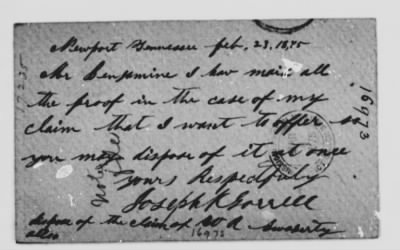 Newport Tennessee feb, 23, 1875
Mr Benjamine I hav made all
the proof in the case of my
claim that I want to offer so
you may dispose of it at once
Yours Respectfully
Joseph K Sorrell
dispose of the claim of A Swagerty
also
16973
16973